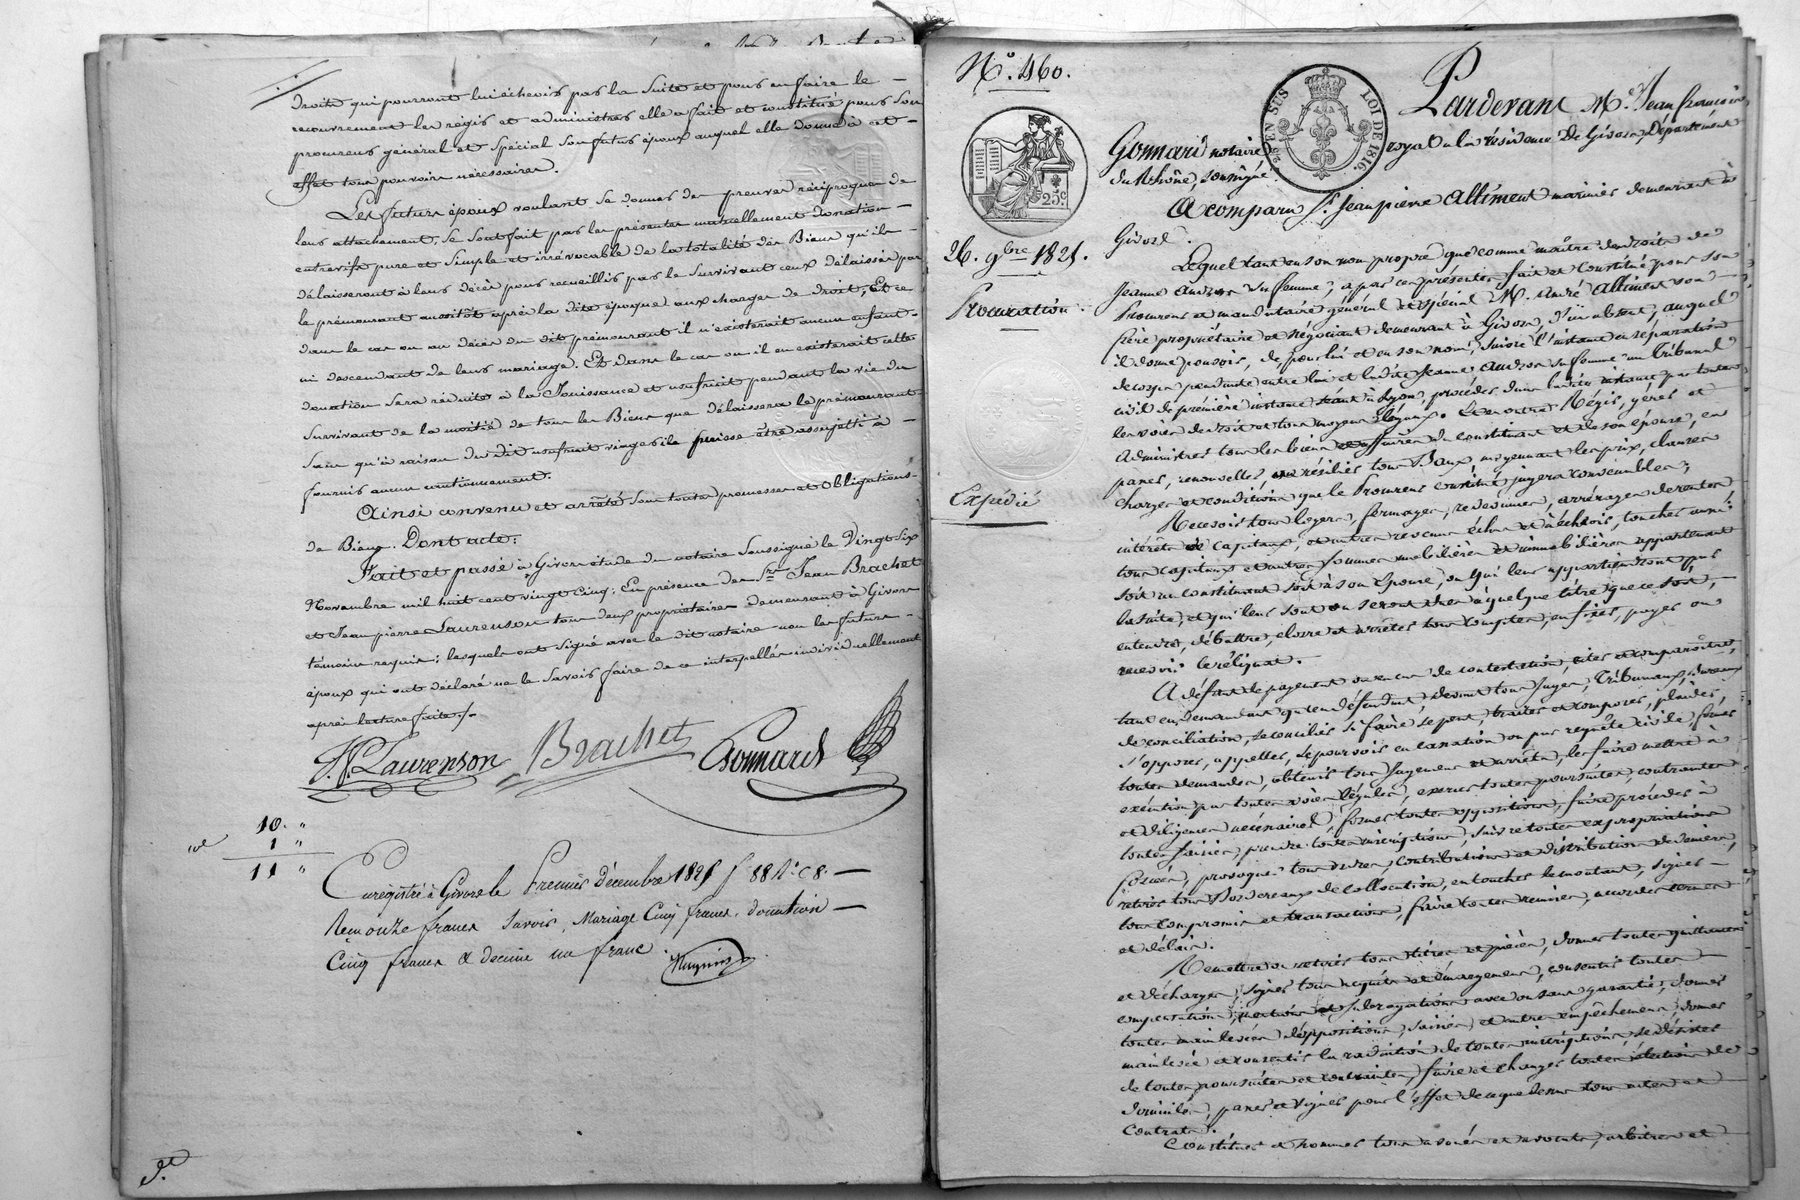 droits qui pourront lui échevir par la suite et pour en faire le —
recouvrement les régir et administrer elle a fait et constitué pour son
procureur général et spécial son futur époux auquel elle donne à cet —
effet tous pouvoirs nécessaires.
Les futurs époux voulant se donner des preuves réciproques de
leur attachement, se sont fait par les présentes mutuellement donation —
entrevifs pure et simple et irrévocable de la totalité des Biens qu'ils —
délaisseront à leur décès pour recueillir par le survivant ceux délaissés par
le prémourant aussitôt après la dite époque, aux charges de droit, Et ce
dans le cas ou au décès du dit prémourant il n'existerait aucun enfant
ni descendant de leur mariage. Et dans le cas ou il en existerait cette
donation sera réduite à la Jouissance et usufruit pendant la vie du
survivant de la moitié de tous les Biens que délaissera le prémourant
sans qu'à raison du dit usufruit viager il puisse être assujetti à —
fournir aucun cautionnement.
Ainsi convenu et arrêté sous toutes promesses et obligations
de Biens. Dont acte:
Fait et passé à Givors étude du notaire soussigné le Vingt six
Novembre mil huit cent vingt cinq: En présence des Srs Jean Brachet
et Jean pierre Laurenson tous deux propriétaires demeurant à Givors
témoins requis; lesquels ont signé avec le dit notaire non les futurs —
époux qui ont déclaré ne le savoir faire de ce interpellés individuellement
après lecture faite./.
J.P. Laurenson Brachet Gonnard
10. "
1 "
11 "
Enregistré à Givors le Premier décembre 1825 fo 88 Ro C 8. —
Reçu onze francs savoir, Mariage Cinq francs. donation —
Cinq francs & decime un franc.
No. 460.
EN SUS
LOI DE 1816.
25 c
Pardevant Me. Jean françois
Gonnard notaire royal à la résidence de Givors, Département
du Rhône, soussigné.
A comparu Sr. Jean pierre Alliment marinier demeurant à
Givors.
26. 9bre. 1825.
Lequel tant en son nom propre que comme maître des droits de
Jeanne Andron sa femme; a par ces présentes fait et constitué pour son
Procuration.
Procureur et mandataire général et spécial M. André Alliment son —
frère propriétaire et négociant demeurant à Givors, d'ici absent; auquel
il donne pouvoir, de pour lui et en son nom, suivre l'instance en séparation
de corps pendante entre lui et ladite Jeanne Andron sa femme au Tribunal
civil de première instance séant à Lyon, procéder dans ladite instance par toutes
les voies de droit et tous moyens légaux. Et en outre Régir, gérer et
administrer tous les biens et affaires du constituant et de son épouse, en
passer, renouveller, ou résilier tous Baux moyennant les prix, clauses
charges et conditions que le Procureur constitué jugera convenables;
Expédié
Recevoir tous loyers, fermages, redevances, arrérages de rentes
intérêts de capitaux, et autres revenus échus et à échoir, toucher aussi
tous capitaux et autres sommes mobilières et immobilières appartenant
soit au constituant soit à son épouse, ou qui leur appartiendront par
la suite, et qui leur sont ou seront dues à quelque titre que ce soit, —
entendre, débattre, clorre et arrêter tous comptes, en fixer, payer ou
recevoir le réliquat.
A défaut de payement ou en cas de contestation, citer et comparoître,
tant en demandant qu'en défendant, devant tous Juges, Tribunaux, Bureaux
de conciliation, se concilier si faire se peut, traiter et composer, plaider,
s'opposer, appeller, se pourvoir en cassation ou par requête civile, former
toutes demandes, obtenir tous Jugemens et arrêts, les faire mettre à
exécution par toutes voies légales, exercer toutes poursuites, contraintes
et diligences nécessaires, former toutes oppositions, faire procéder à
toutes saisies, prendre toutes inscriptions, suivre toutes expropriations
forcées, provoquer tous ordres, contributions et distribution de deniers,
retirer tous Bordereaux de collocation, en toucher le montant, signer —
tous compromis et transactions, faire toutes remises, accorder termes
et délais.
Remettre ou retirer tous titres et pièces, donner toutes quittances
et décharges, signer tous acquits et émargemens, consentir toutes —
compensations, et subrogations avec ou sans garantie, donner
toutes mainlevées d'oppositions, saisies et autres empêchemens, donner
mainlevée et consentir la radiation de toutes inscriptions, se désister
de toutes poursuites et contraintes, faire et changer toutes élections de
domicile, passer et signer pour l'effet de ce que dessus tous actes et
contrats.
Constituer et nommer tous avoués et avocats, arbitres et